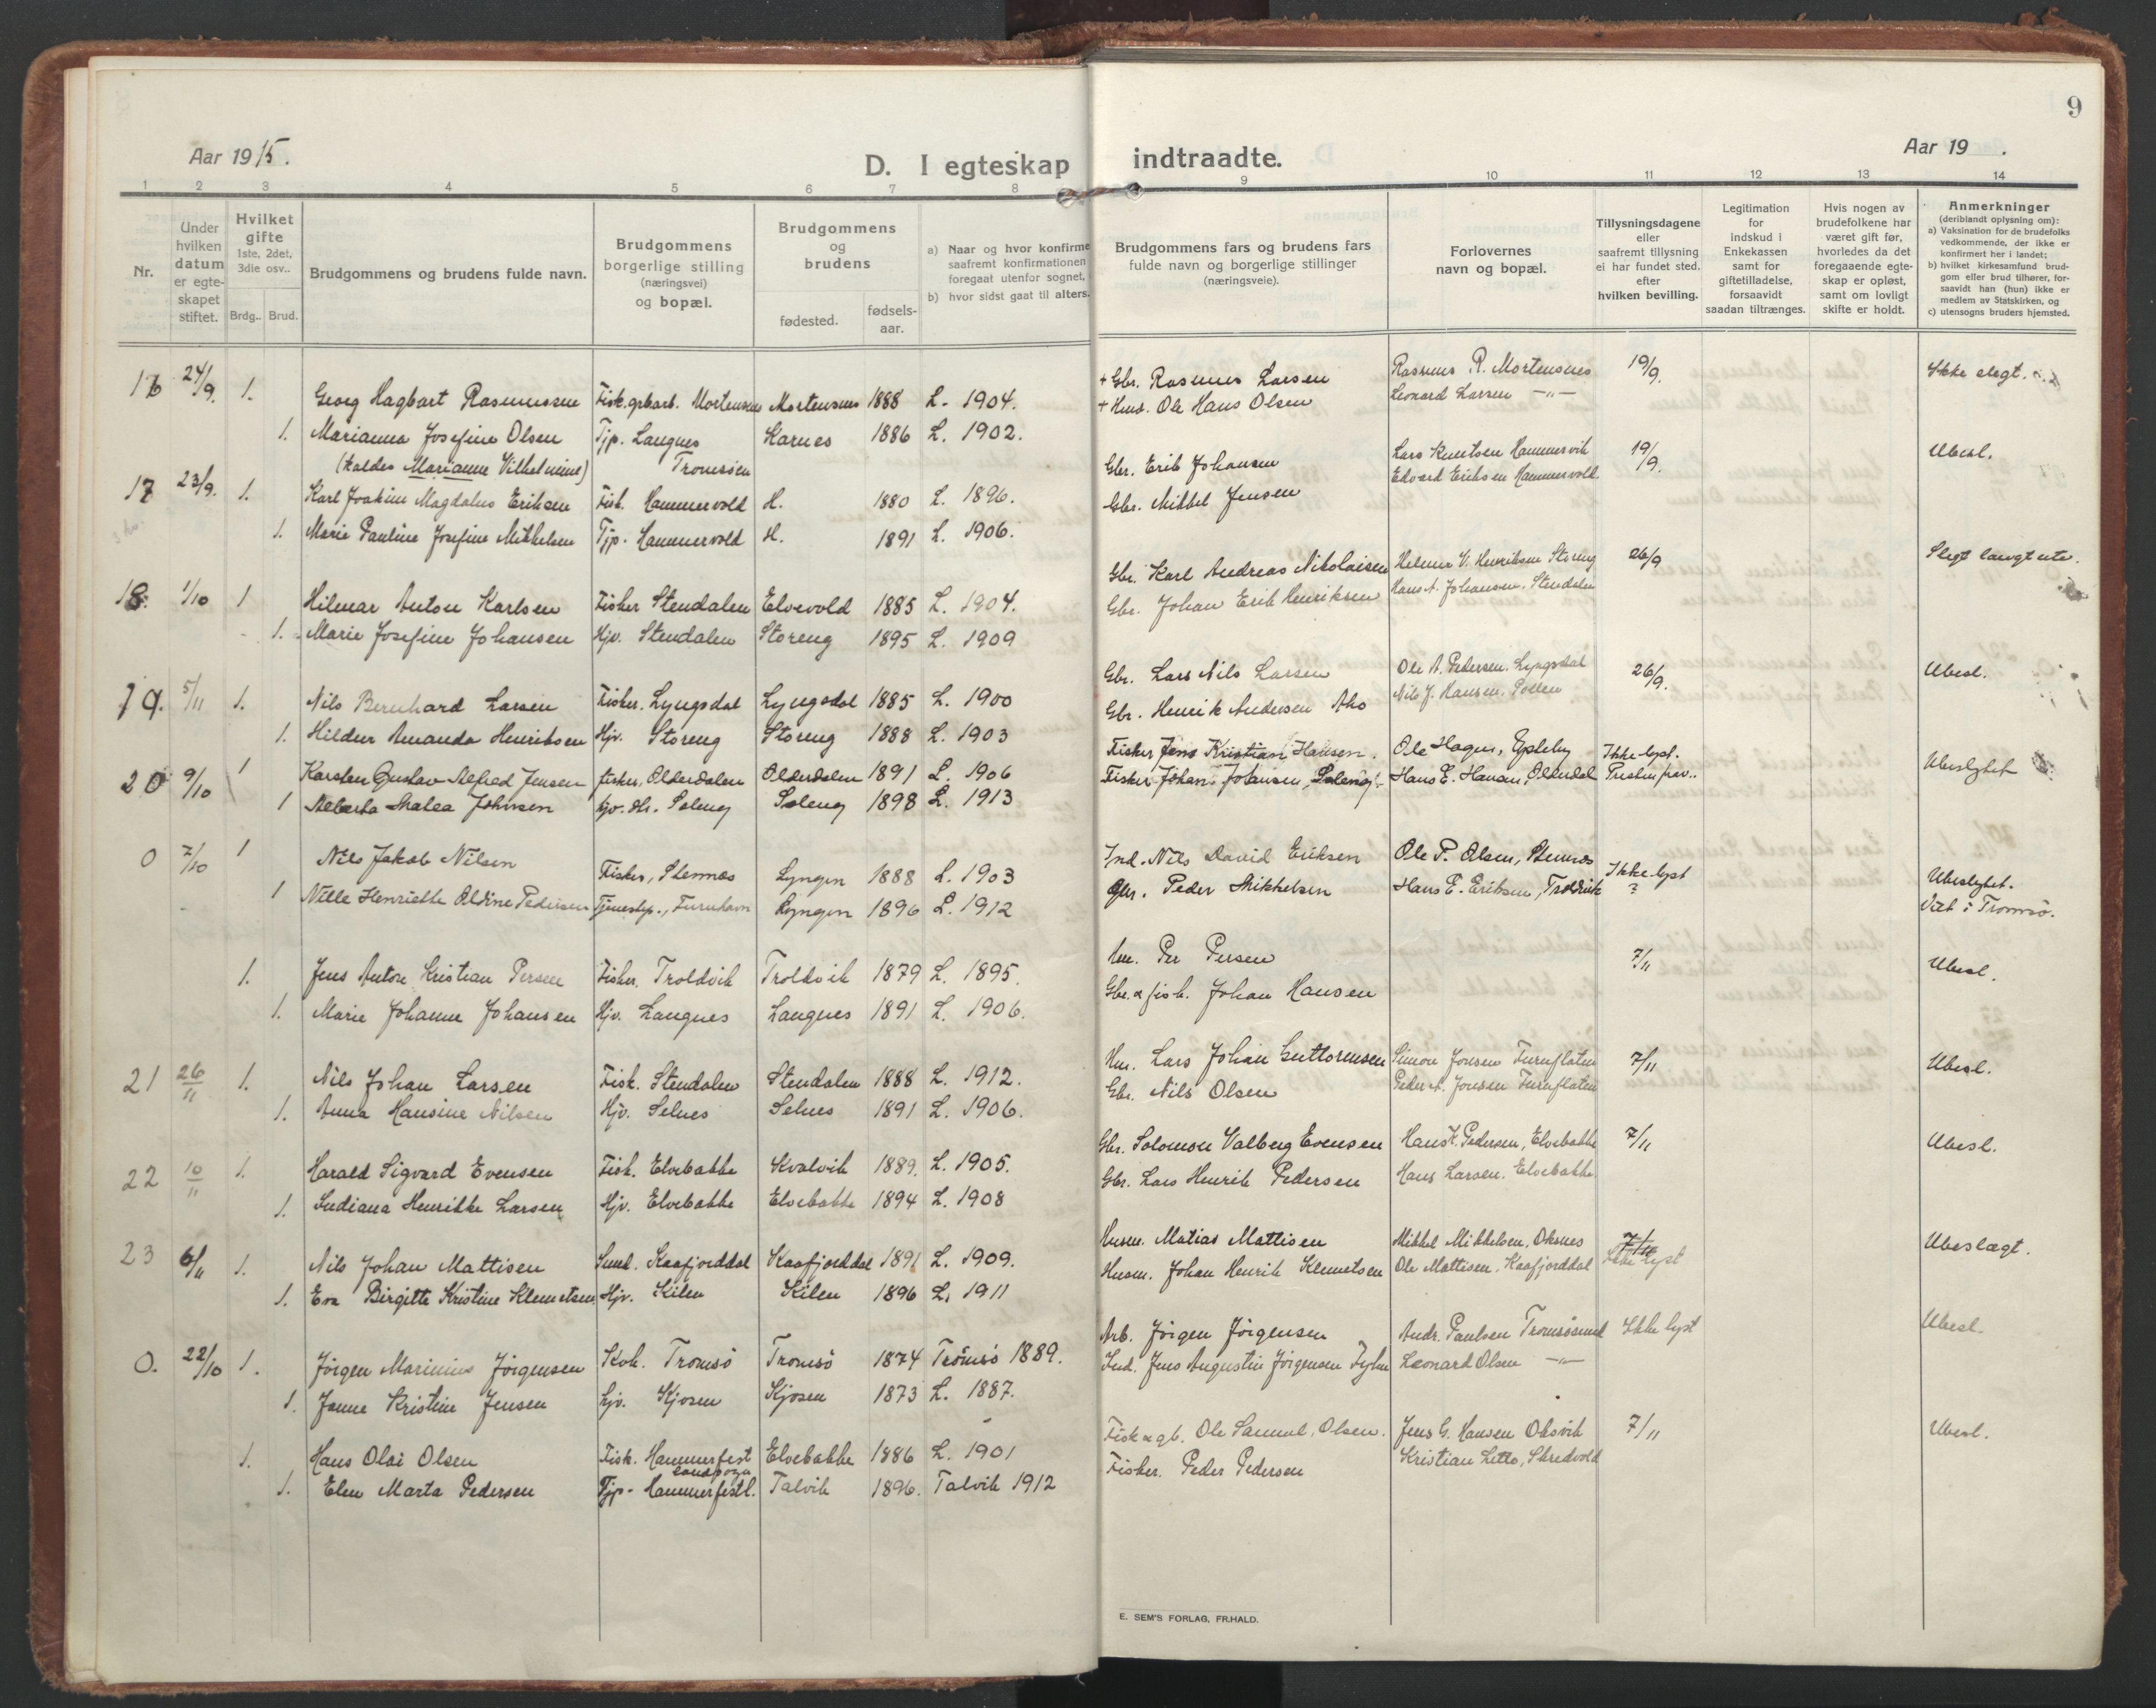 9
Aar 1915.
D. I egteskap indtraadte.
Aar 19 .
1 2 3 4 5 6 7 8 9 10 11 12 13 14
Nr.
Under hvilken datum er egte-skapet stiftet.
Hvilket gifte 1ste, 2det, 3die osv..
Brdg.. Brud.
Brudgommens og brudens fulde navn.
Brudgommens borgerlige stilling (næringsvei) og bopæl.
Brudgommens og brudens
fødested.
fødsels-aar.
a) Naar og hvor konfirme
saafremt konfirmationen
foregaat utenfor sognet,
b) hvor sidst gaat til alters.
Brudgommens fars og brudens fars
fulde navn og borgerlige stillinger
(næringsveie).
Forlovernes
navn og bopæl.
Tillysningsdagene
eller
saafremt tillysning
ei har fundet sted.
efter
hvilken bevilling.
Legitimation
for
indskud i
Enkekassen
samt for
giftetilladelse,
forsaavidt
saadan tiltrænges.
Hvis nogen av
brudefolkene har
været gift før,
hvorledes da det
foregaaende egte-
skap er opløst,
samt om lovligt
skifte er holdt.
Anmerkninger
(deriblandt oplysning om):
a) Vaksination for de brudefolks
vedkommende, der ikke er
konfirmert her i landet;
b) hvilket kirkesamfund brud-
gom eller brud tilhører, for-
saavidt han (hun) ikke er
medlem av Statskirken, og
c) utensogns bruders hjemsted.
16 24/9. 1. Georg Hagbart Rasmussen Fisk. grbarb. Mortensnes Mortensnes 1888 L. 1904. + Gbr. Rasmus Larsen Rasmus R. Mortensnes 19/9. Ikke slegt.
1. Marianna Josefine Olsen Tjp. Langnes Karnes 1886 L. 1902. + Husm. Ole Hans Olsen Leonard Larsen —"—
(kaldes Marianne Vilhelmine) Tromsøen
17 23/9. 1. Karl Joakim Magdalus Eriksen Fisk. Hammervold H. 1880 L. 1896. Gbr. Erik Johansen Lars Knutsen Hammervik 19/9. Ubesl.
1. Marie Pauline Josefine Mikkelsen Tjp. Hammervold H. 1891 L. 1906. Gbr. Mikkel Jensen Edvard Eriksen Hammervold.
18. 1/10 1 Hilmar Anton Karlsen Fisker Stendalen Elvevold 1885 L. 1904. Gbr. Karl Andreas Nikolaisen Helmer V. Henriksen Storeng 26/9 Slegt langt ute.
1. Marie Josefine Johansen Hjv. Stendalen Storeng 1895 L. 1909 Gbr. Johan Erik Henriksen Hans A. Johansen, Stendalen
19. 5/11 1. Nils Bernhard Larsen Fisker. Lyngsdal Lyngsdal 1885 L. 1900 Gbr. Lars Nils Larsen Ole A. Pedersen. Lyngsdal 26/9. Ubesl.
1. Hildur Amanda Henriksen Hjv. Storeng Storeng 1888 L. 1903 Gbr. Henrik Andersen Aho Nils J. Hansen, Pollen
20 9/10 1 Karsten Gustav Alfred Jensen fisker, Olderdalen Olderdalen 1891 L. 1906 Fisker Jens Kristian Hansen. Ole Hagen, Epleby Ikke lyst. Ubeslegtet
1 Alberta Malea Johnsen hjv. Soleng Soleng 1898 L. 1913 Fisker Johan Johansen, Soleng. Hans E. Hansen, Olderdal
0 7/10 1 Nils Jakob Nilsen Fisker, Stennæs Lyngen 1888 L. 1903 Ind. Nils David Eriksen Ole P. Olsen, Stennæs Ikke lyst Ubeslegtet.
1 Nille Henriette Oldine Pedersen Tjenestep., Furuhavn Lyngen 1896 L. 1912 Gbr. Peder Mikkelsen Hans E. Eriksen, Troldvik ? Viet i Tromsø.
1. Jens Anton Kristian Persen Fisker. Troldvik Troldvik 1879 L. 1895. Hm. Per Persen 7/11 Ubesl.
1. Marie Johanne Johansen Hjv. Langnes Langnes 1891 L. 1906. Gbr. & fisk. Johan Hansen
21 26/11 1. Nils Johan Larsen Fisk. Stendalen Stendalen 1888 L. 1912. Hm. Lars Johan Guttormsen Simon Jonsen Furuflaten 7/11 Ubesl.
1. Anna Hansine Nilsen Hjv. Selnes Selnes 1891 L. 1906. Gbr. Nils Olsen Peder A. Jonsen Furuflaten
22 10/11 1. Harald Sigvard Evensen Fisk. Elvebakke Kvalvik 1889. L. 1905. Gbr. Solomon Valberg Evensen Hans K. Pedersen, Elvebakke 7/11 Ubesl.
1. Indiana Henrikke Larsen Hjv. Elvebakke Elvebakke 1894 L. 1908 Gbr. Lars Henrik Pedersen Hans Larsen. Elvebakke.
23 6/11 1. Nils Johan Mattisen Kaafjorddal Kaafjorddal 1891 L. 1909. Husm. Matias Mattisen Mikkel Mikkelsen, Oksnes 7/11 Ikke lyst Ubeslægt.
1. Eva Birgitte Kristine Klemetsen Hjv. Kilen Kilen 1896 L. 1911 Husm. Johan Henrik Klemetsen Ole Mattisen. Kaafjorddal
0. 22/10 1. Jörgen Marinius Jörgensen Tromsö Tromsö 1874 Tromsö 1889. Arb. Jörgen Jörgensen Andr. Paulsen Tromsösund Ikke lyst Ubesl.
1. Janne Kristine Jensen hjv. Kjosen Kjosen 1873 L. 1887. Ind. Jens Augustin Jörgensen Leonard Olsen —"—
1. Hans Olai Olsen Fisk. Hammerfest Elvebakke 1886 L. 1901 Fisk & gb. Ole Samuel Olsen. Jens G. Hansen Oksvik 7/11 Ubesl.
landsogn
1. Elen Marta Pedersen Tjp. Hammerfestl. Talvik 1896. Talvik 1912 Fisker. Peder Pedersen Kristian
E. SEM'S FORLAG, FR.HALD.